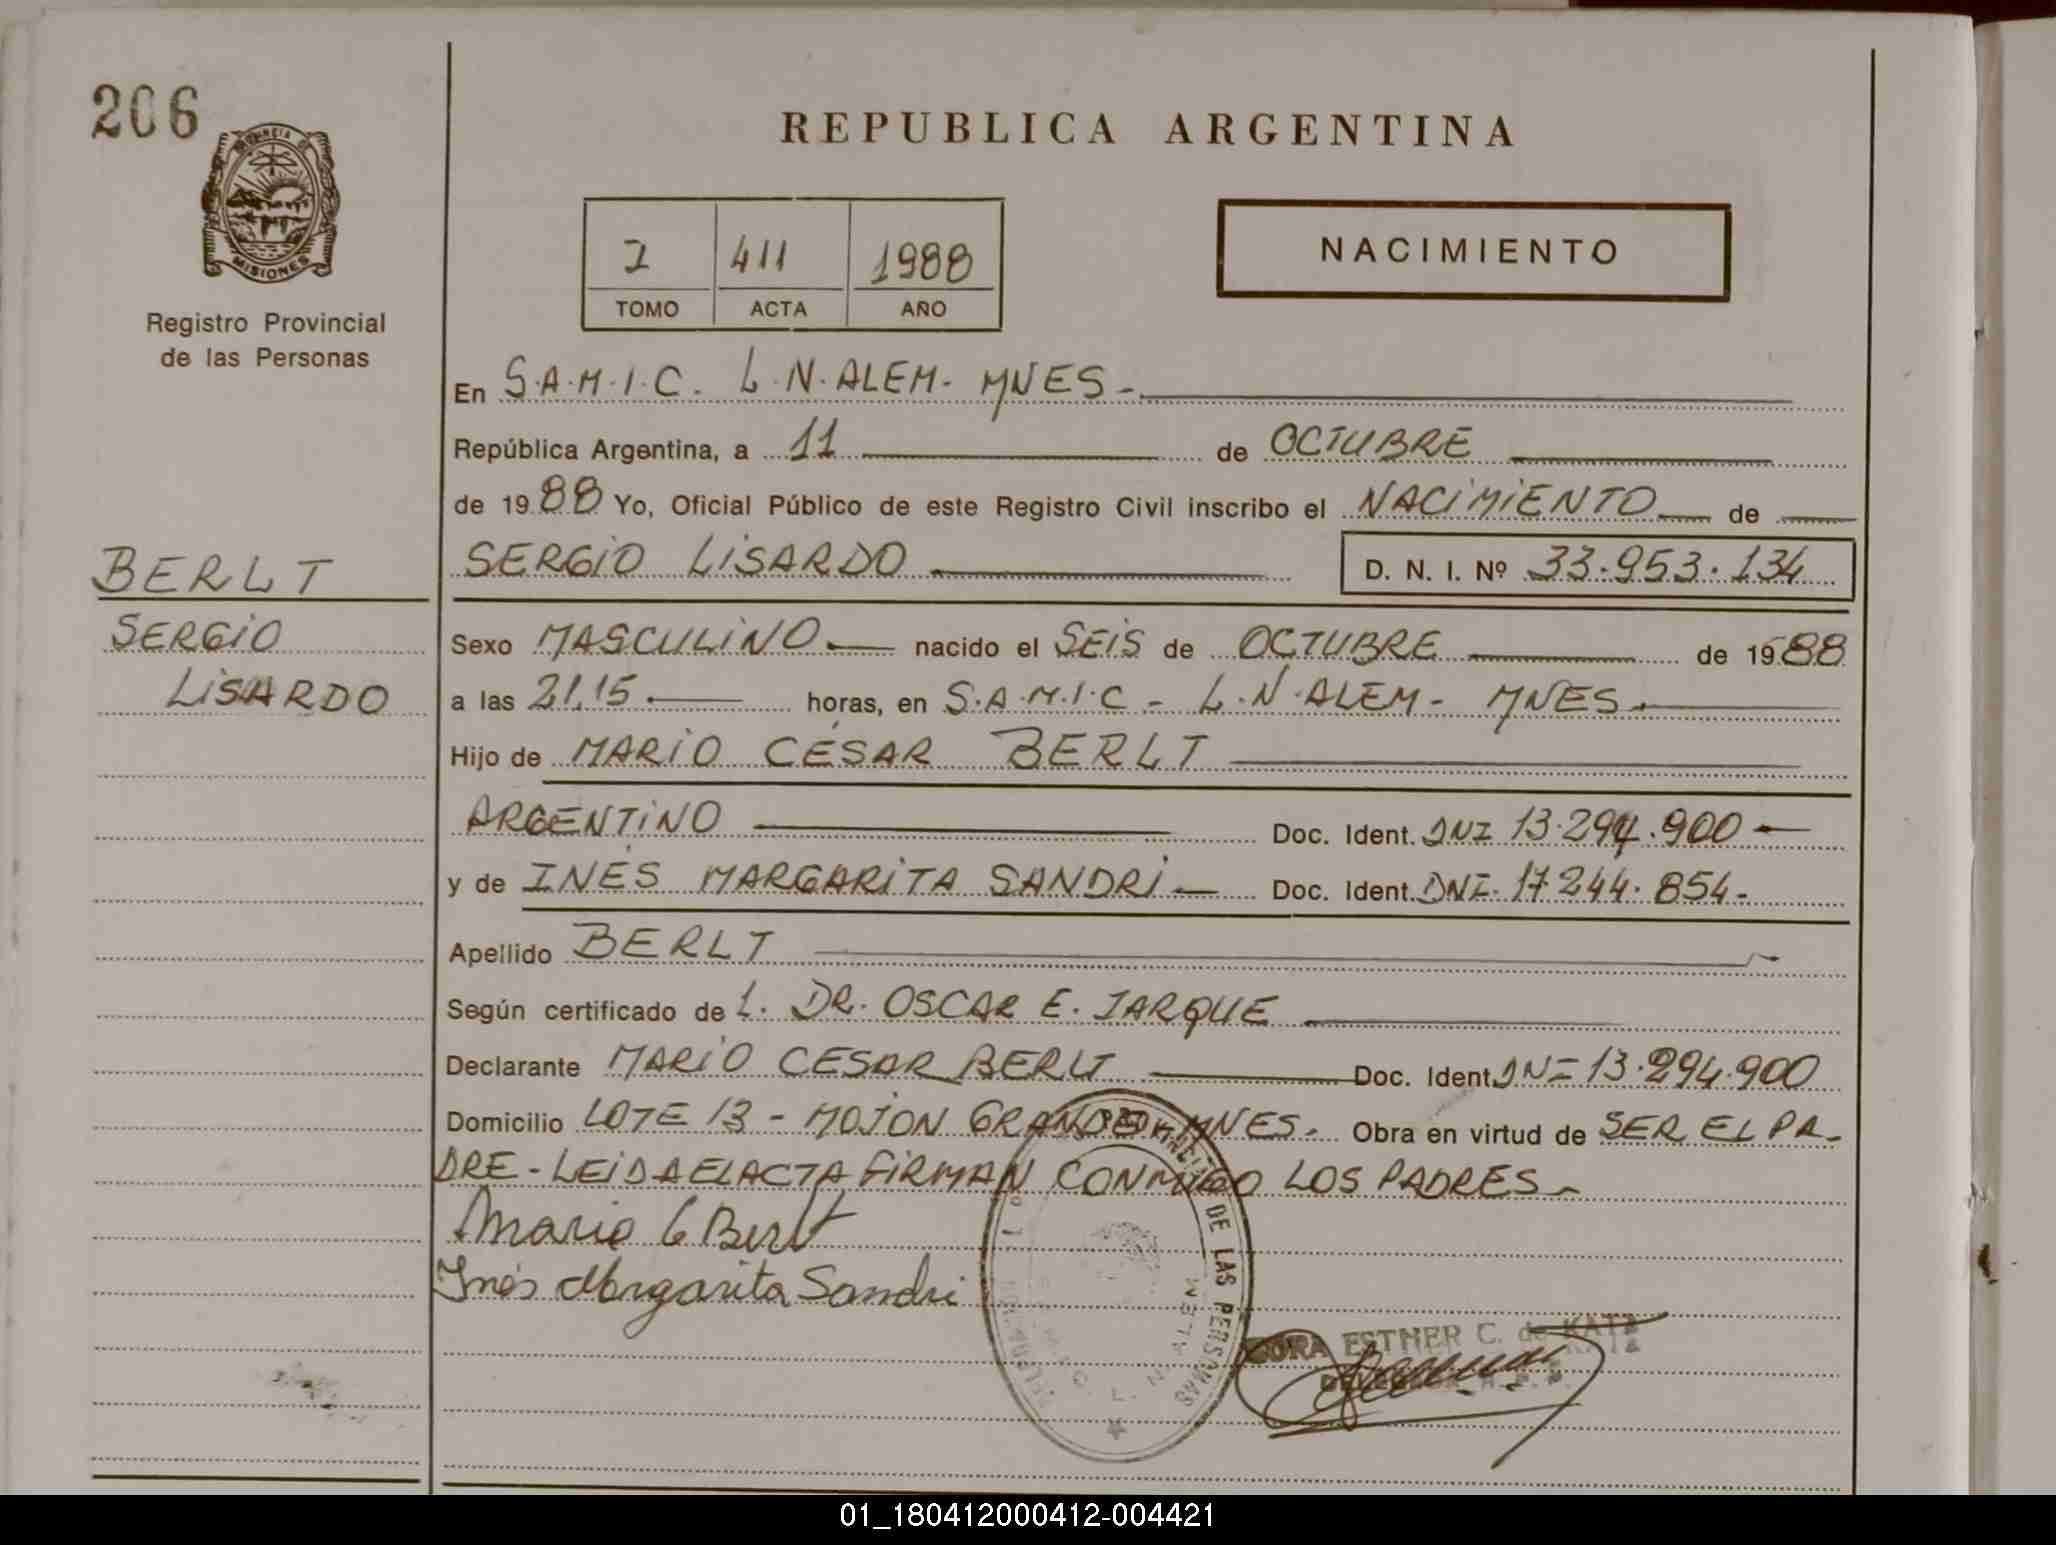 206
REPUBLICA ARGENTINA
PROVINCIA DE
MISIONES
I 411 1988
TOMO ACTA AÑO
NACIMIENTO
Registro Provincial
de las Personas
En S.A.M.I.C. L.N.ALEM- MNES-
República Argentina, a 11 de OCTUBRE
de 1988 Yo, Oficial Público de este Registro Civil inscribo el NACIMIENTO de
BERLT
SERGIO LISARDO D. N. I. Nº 33.953.134
SERGIO
LISARDO
Sexo MASCULINO nacido el SEIS de OCTUBRE de 1988
a las 21.15 horas, en S.A.M.I.C - L.N.ALEM- MNES-
Hijo de MARIO CÉSAR BERLT
ARGENTINO Doc. Ident. DNI 13.294.900-
y de INÉS MARGARITA SANDRI- Doc. Ident. DNI. 17244.854-
Apellido BERLT
Según certificado de L. DR. OSCAR E. JARQUE
Declarante MARIO CESAR BERLT Doc. Ident. DNI 13.294.900
Domicilio LOTE 13 - MOJON GRANDE - MNES. Obra en virtud de SER EL PA-
DRE - LEIDA EL ACTA FIRMAN CONMIGO LOS PADRES-
Mario C Berlt
Inés Margarita Sandri
DE LAS PERSONAS
L. N. ALEM
ESTHER C. de KATZ
01_180412000412-004421